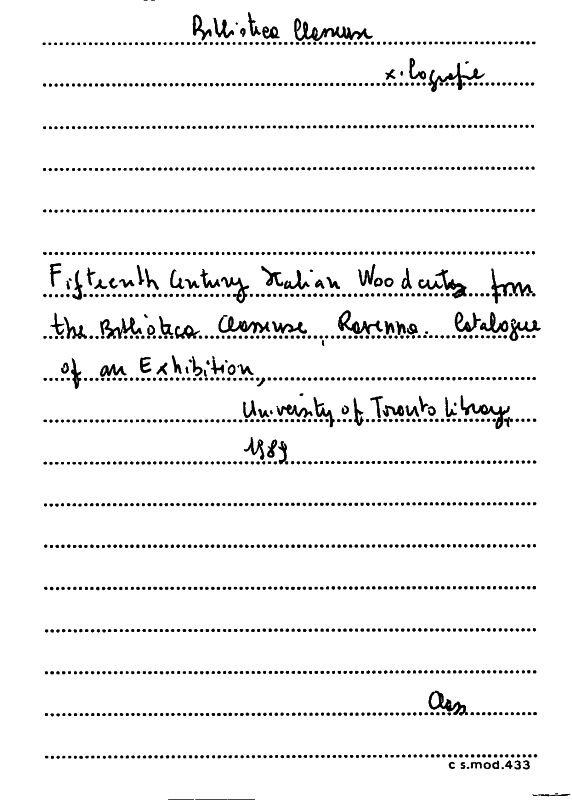 Biblioteca Classense
xilografie
Fifteenth Century Italian Woodcuts from
the Biblioteca Classense, Ravenna. Catalogue
of an Exhibition,
University of Toronto Library,
1989
Class
c s.mod.433